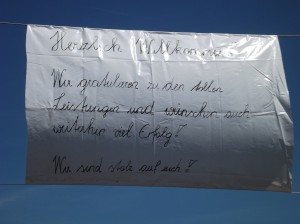 Herzlich Willkommen!
Wir gratulieren zu den tollen
Leistungen und wünschen euch
weiterhin viel Erfolg!
Wir sind stolz auf euch!